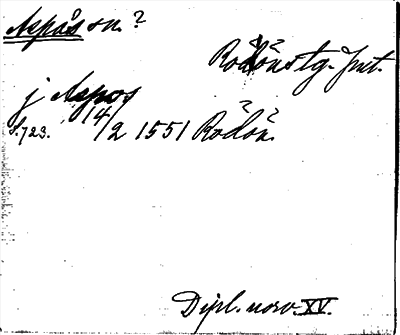 Aspås sn.?
Rödöns tg. Jmt.
j Aspos
S. 723. 14/2 1551 Rödön.
Dipl. norv. XV.